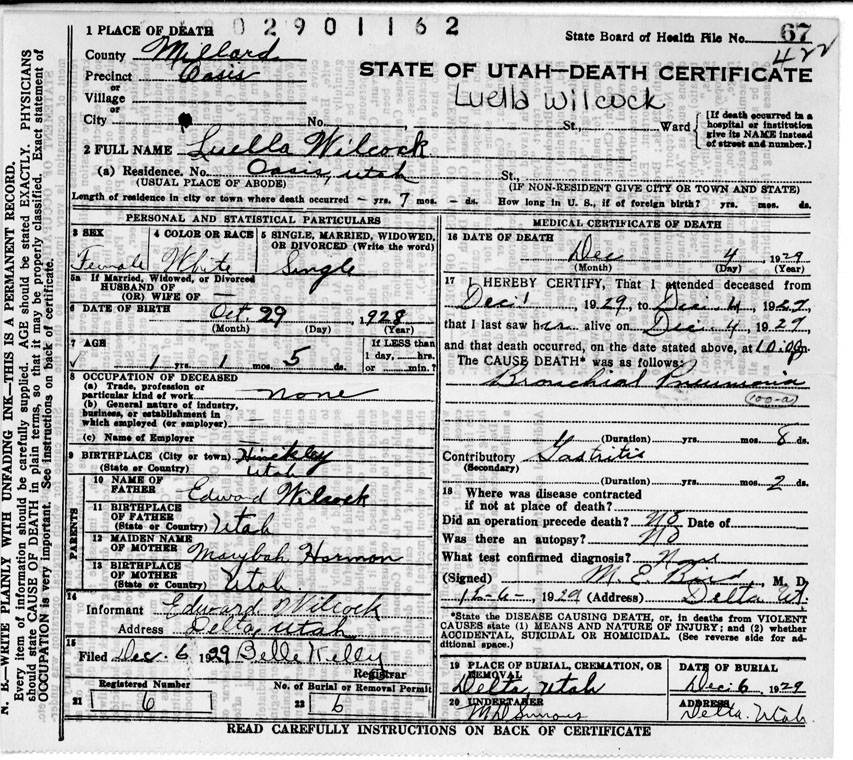 02901162
State Board of Health File No. 67
422
1 PLACE OF DEATH
County Millard
Precinct Oasis
or
Village
or
City No. , St., Ward
STATE OF UTAH—DEATH CERTIFICATE
Luella Wilcock
[If death occurred in a hospital or institution give its NAME instead of street and number.]
2 FULL NAME Luella Wilcock
(a) Residence. No. Oasis, Utah St.,
(USUAL PLACE OF ABODE) (IF NON-RESIDENT GIVE CITY OR TOWN AND STATE)
Length of residence in city or town where death occurred – yrs. 7 mos. – ds. How long in U. S., if of foreign birth? yrs. mos. ds.
PERSONAL AND STATISTICAL PARTICULARS
3 SEX
Female
4 COLOR OR RACE
White
5 SINGLE, MARRIED, WIDOWED, OR DIVORCED (Write the word)
Single
5a If Married, Widowed, or Divorced
HUSBAND OF
(OR) WIFE OF —
6 DATE OF BIRTH Oct. 29 1928
(Month) (Day) (Year)
7 AGE
1 yrs. 1 mos. 5 ds.
If LESS than
1 day,....hrs.
or ....min.?
8 OCCUPATION OF DECEASED
(a) Trade, profession or
particular kind of work none
(b) General nature of industry,
business, or establishment in
which employed (or employer)
(c) Name of Employer
9 BIRTHPLACE (City or town) Hinckley
(State or Country) Utah
PARENTS
10 NAME OF FATHER Edward Wilcock
11 BIRTHPLACE OF FATHER (State or Country) Utah
12 MAIDEN NAME OF MOTHER Harmon
13 BIRTHPLACE OF MOTHER (State or Country) Utah
14
Informant Edward Wilcock
Address Delta, Utah
15
Filed Dec. 6 1929 Belle Kelly
Registrar
Registered Number
21 6
No. of Burial or Removal Permit
22 6
MEDICAL CERTIFICATE OF DEATH
16 DATE OF DEATH
Dec 4, 1929
(Month) (Day) (Year)
17 I HEREBY CERTIFY, That I attended deceased from
Dec 1, 1929, to Dec. 4, 1929
that I last saw her alive on Dec. 4, 1929
and that death occurred, on the date stated above, at 10:00 m.
The CAUSE DEATH* was as follows:
Bronchial Pneumonia
(100-a)
(Duration) yrs. mos. 8 ds.
Contributory Gastritis
(Secondary)
(Duration) yrs. mos. 2 ds.
18 Where was disease contracted
if not at place of death?
Did an operation precede death? No Date of
Was there an autopsy? No
What test confirmed diagnosis?
(Signed) M. E. Bird M. D.
12-6-, 1929 (Address) Delta Ut.
*State the DISEASE CAUSING DEATH, or, in deaths from VIOLENT
CAUSES state (1) MEANS AND NATURE OF INJURY; and (2) whether
ACCIDENTAL, SUICIDAL OR HOMICIDAL. (See reverse side for ad-
ditional space.)
19 PLACE OF BURIAL, CREMATION, OR REMOVAL
Delta, Utah
DATE OF BURIAL
Dec. 6, 1929
20 UNDERTAKER
ADDRESS
Delta, Utah
READ CAREFULLY INSTRUCTIONS ON BACK OF CERTIFICATE
N. B.—WRITE PLAINLY WITH UNFADING INK—THIS IS A PERMANENT RECORD.
Every item of information should be carefully supplied. AGE should be stated EXACTLY. PHYSICIANS
should state CAUSE OF DEATH in plain terms, so that it may be properly classified. Exact statement of
OCCUPATION is very important. See instructions on back of certificate.